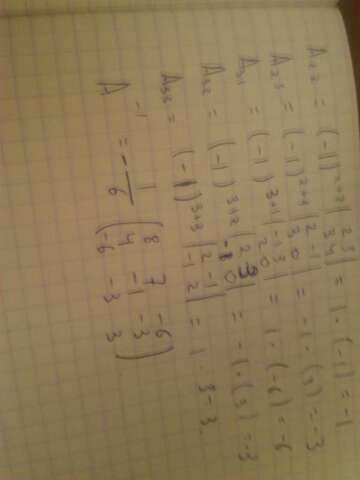 A₂₂ = (-1)²⁺² |2 5; 3 4| = 1 · (-1) = -1
A₂₃ = (-1)²⁺³ |2 -1; 3 0| = -1 · (3) = -3
A₃₁ = (-1)³⁺¹ |-1 3; 2 0| = 1 · (-6) = -6
A₃₂ = (-1)³⁺² |2 3; 0| = -1 · (3) = -3
A₃₃ = (-1)³⁺³ |2 -1; -1 2| = 1 · 3 - 3.
A⁻¹ = - 1/6 (8 7 -6; 4 -1 -3; -6 -3 3)